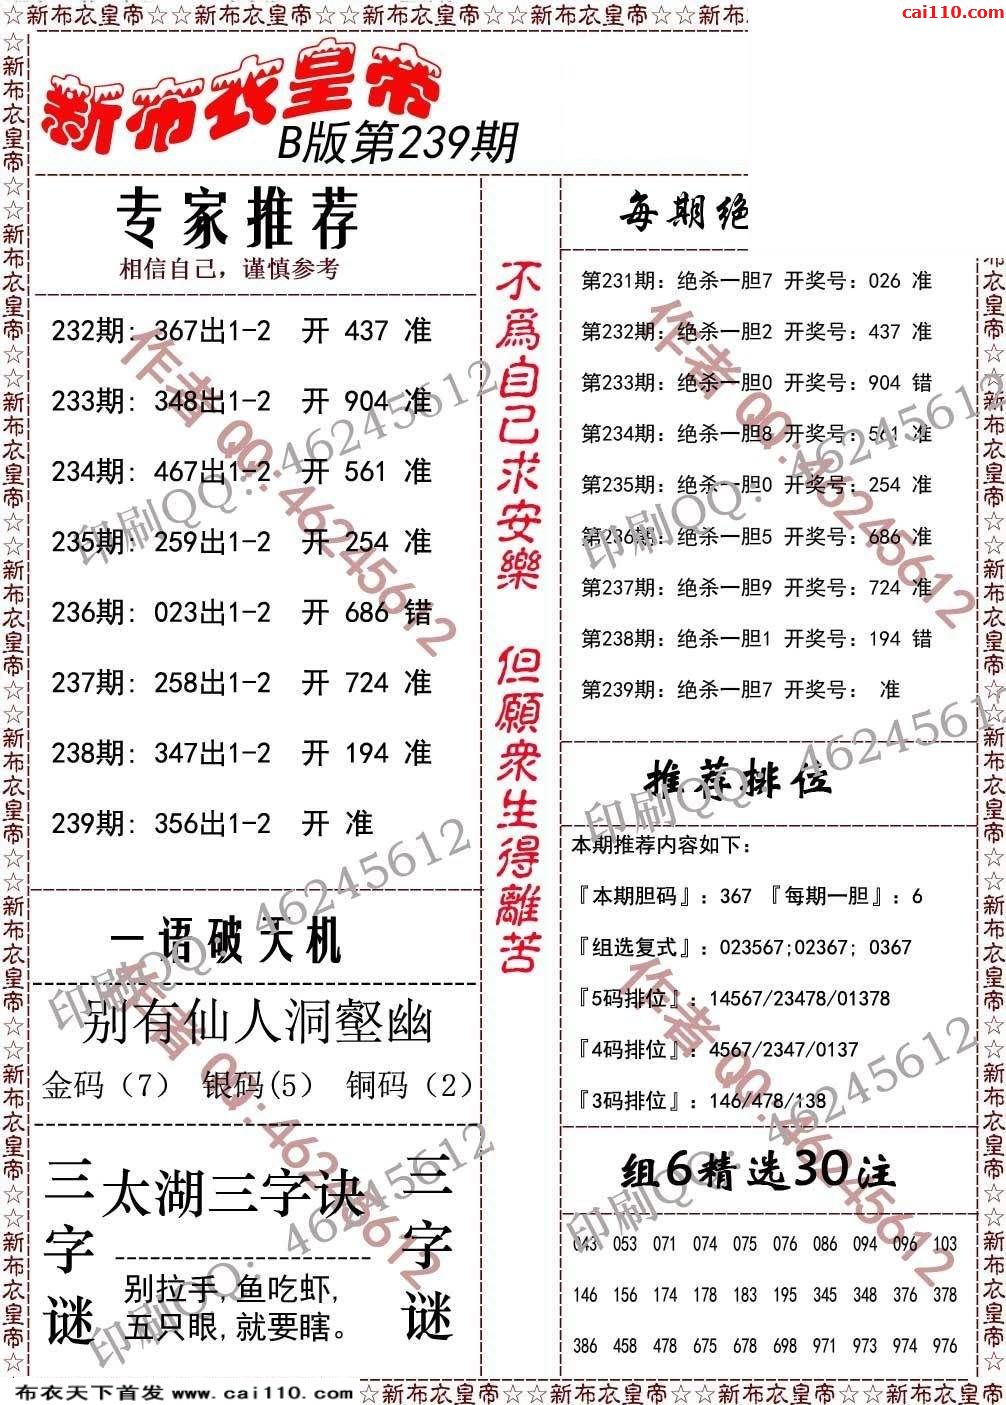 ☆新布衣皇帝☆☆新布衣皇帝☆☆新布衣皇帝☆☆新布衣皇帝☆☆新布
cai110.com
新布衣皇帝
B版第239期
专家推荐
相信自己，谨慎参考
232期: 367出1-2 开 437 准
233期: 348出1-2 开 904 准
234期: 467出1-2 开 561 准
235期: 259出1-2 开 254 准
236期: 023出1-2 开 686 错
237期: 258出1-2 开 724 准
238期: 347出1-2 开 194 准
239期: 356出1-2 开 准
一语破天机
别有仙人洞壑幽
金码（7） 银码(5） 铜码（2）
三字谜
太湖三字诀
别拉手,鱼吃虾,
五只眼,就要瞎。
三字谜
不為自己求安樂 但願衆生得離苦
每期绝
第231期: 绝杀一胆7 开奖号: 026 准
第232期: 绝杀一胆2 开奖号: 437 准
第233期: 绝杀一胆0 开奖号: 904 错
第234期: 绝杀一胆8 开奖号: 561 准
第235期: 绝杀一胆0 开奖号: 254 准
第236期: 绝杀一胆5 开奖号: 686 准
第237期: 绝杀一胆9 开奖号: 724 准
第238期: 绝杀一胆1 开奖号: 194 错
第239期: 绝杀一胆7 开奖号: 准
推荐排位
本期推荐内容如下：
『本期胆码』: 367 『每期一胆』: 6
『组选复式』: 023567;02367; 0367
『5码排位』: 14567/23478/01378
『4码排位』: 4567/2347/0137
『3码排位』: 146/478/138
组6精选30注
043 053 071 074 075 076 086 094 096 103
146 156 174 178 183 195 345 348 376 378
386 458 478 675 678 698 971 973 974 976
作者 QQ:46245612
印刷QQ: 46245612
作者 QQ:46245612
印刷QQ: 46245612
印刷QQ: 46245612
印刷QQ: 46245612
作者 QQ:46245612
印刷QQ: 46245612
作者 QQ:46245612
印刷QQ: 46245612
☆新布衣皇帝☆☆新布衣皇帝☆☆新布衣皇帝☆☆新布衣皇帝☆☆新布衣皇帝☆☆新布衣皇帝☆☆新布衣皇帝☆☆新布衣皇帝☆
衣皇帝☆☆新布衣皇帝☆☆新布衣皇帝☆☆新布衣皇帝☆☆新布衣皇帝☆☆新布衣皇帝☆☆新布衣皇帝☆
布衣天下首发 www.cai110.com
☆新布衣皇帝☆☆新布衣皇帝☆☆新布衣皇帝☆☆新布衣皇帝☆